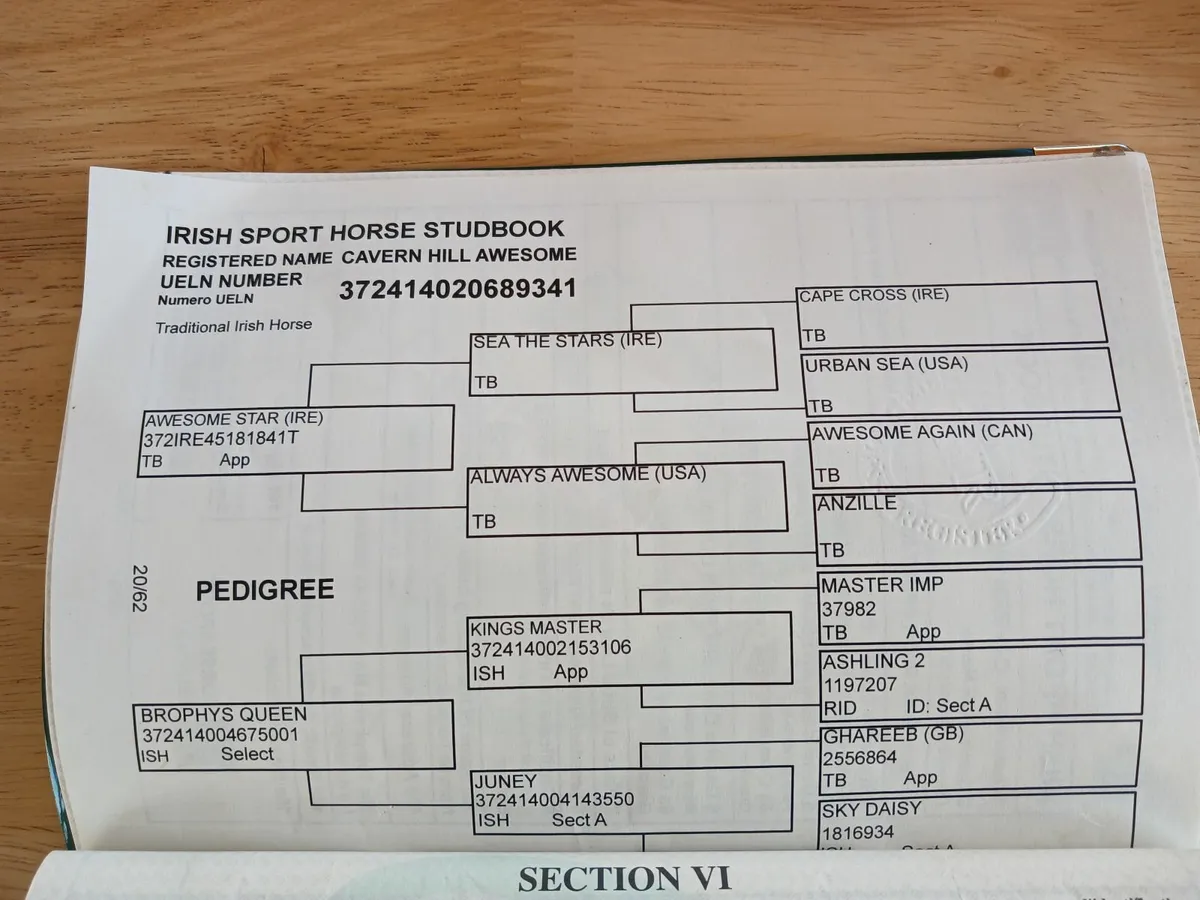 IRISH SPORT HORSE STUDBOOK
REGISTERED NAME CAVERN HILL AWESOME
UELN NUMBER
Numero UELN
372414020689341
Traditional Irish Horse
AWESOME STAR (IRE)
372IRE45181841T
TB App
SEA THE STARS (IRE)
TB
ALWAYS AWESOME (USA)
TB
CAPE CROSS (IRE)
TB
URBAN SEA (USA)
TB
AWESOME AGAIN (CAN)
TB
ANZILLE
TB
20/62
PEDIGREE
BROPHYS QUEEN
372414004675001
ISH Select
KINGS MASTER
372414002153106
ISH App
JUNEY
372414004143550
ISH Sect A
MASTER IMP
37982
TB App
ASHLING 2
1197207
RID ID: Sect A
GHAREEB (GB)
2556864
TB App
SKY DAISY
1816934
SECTION VI